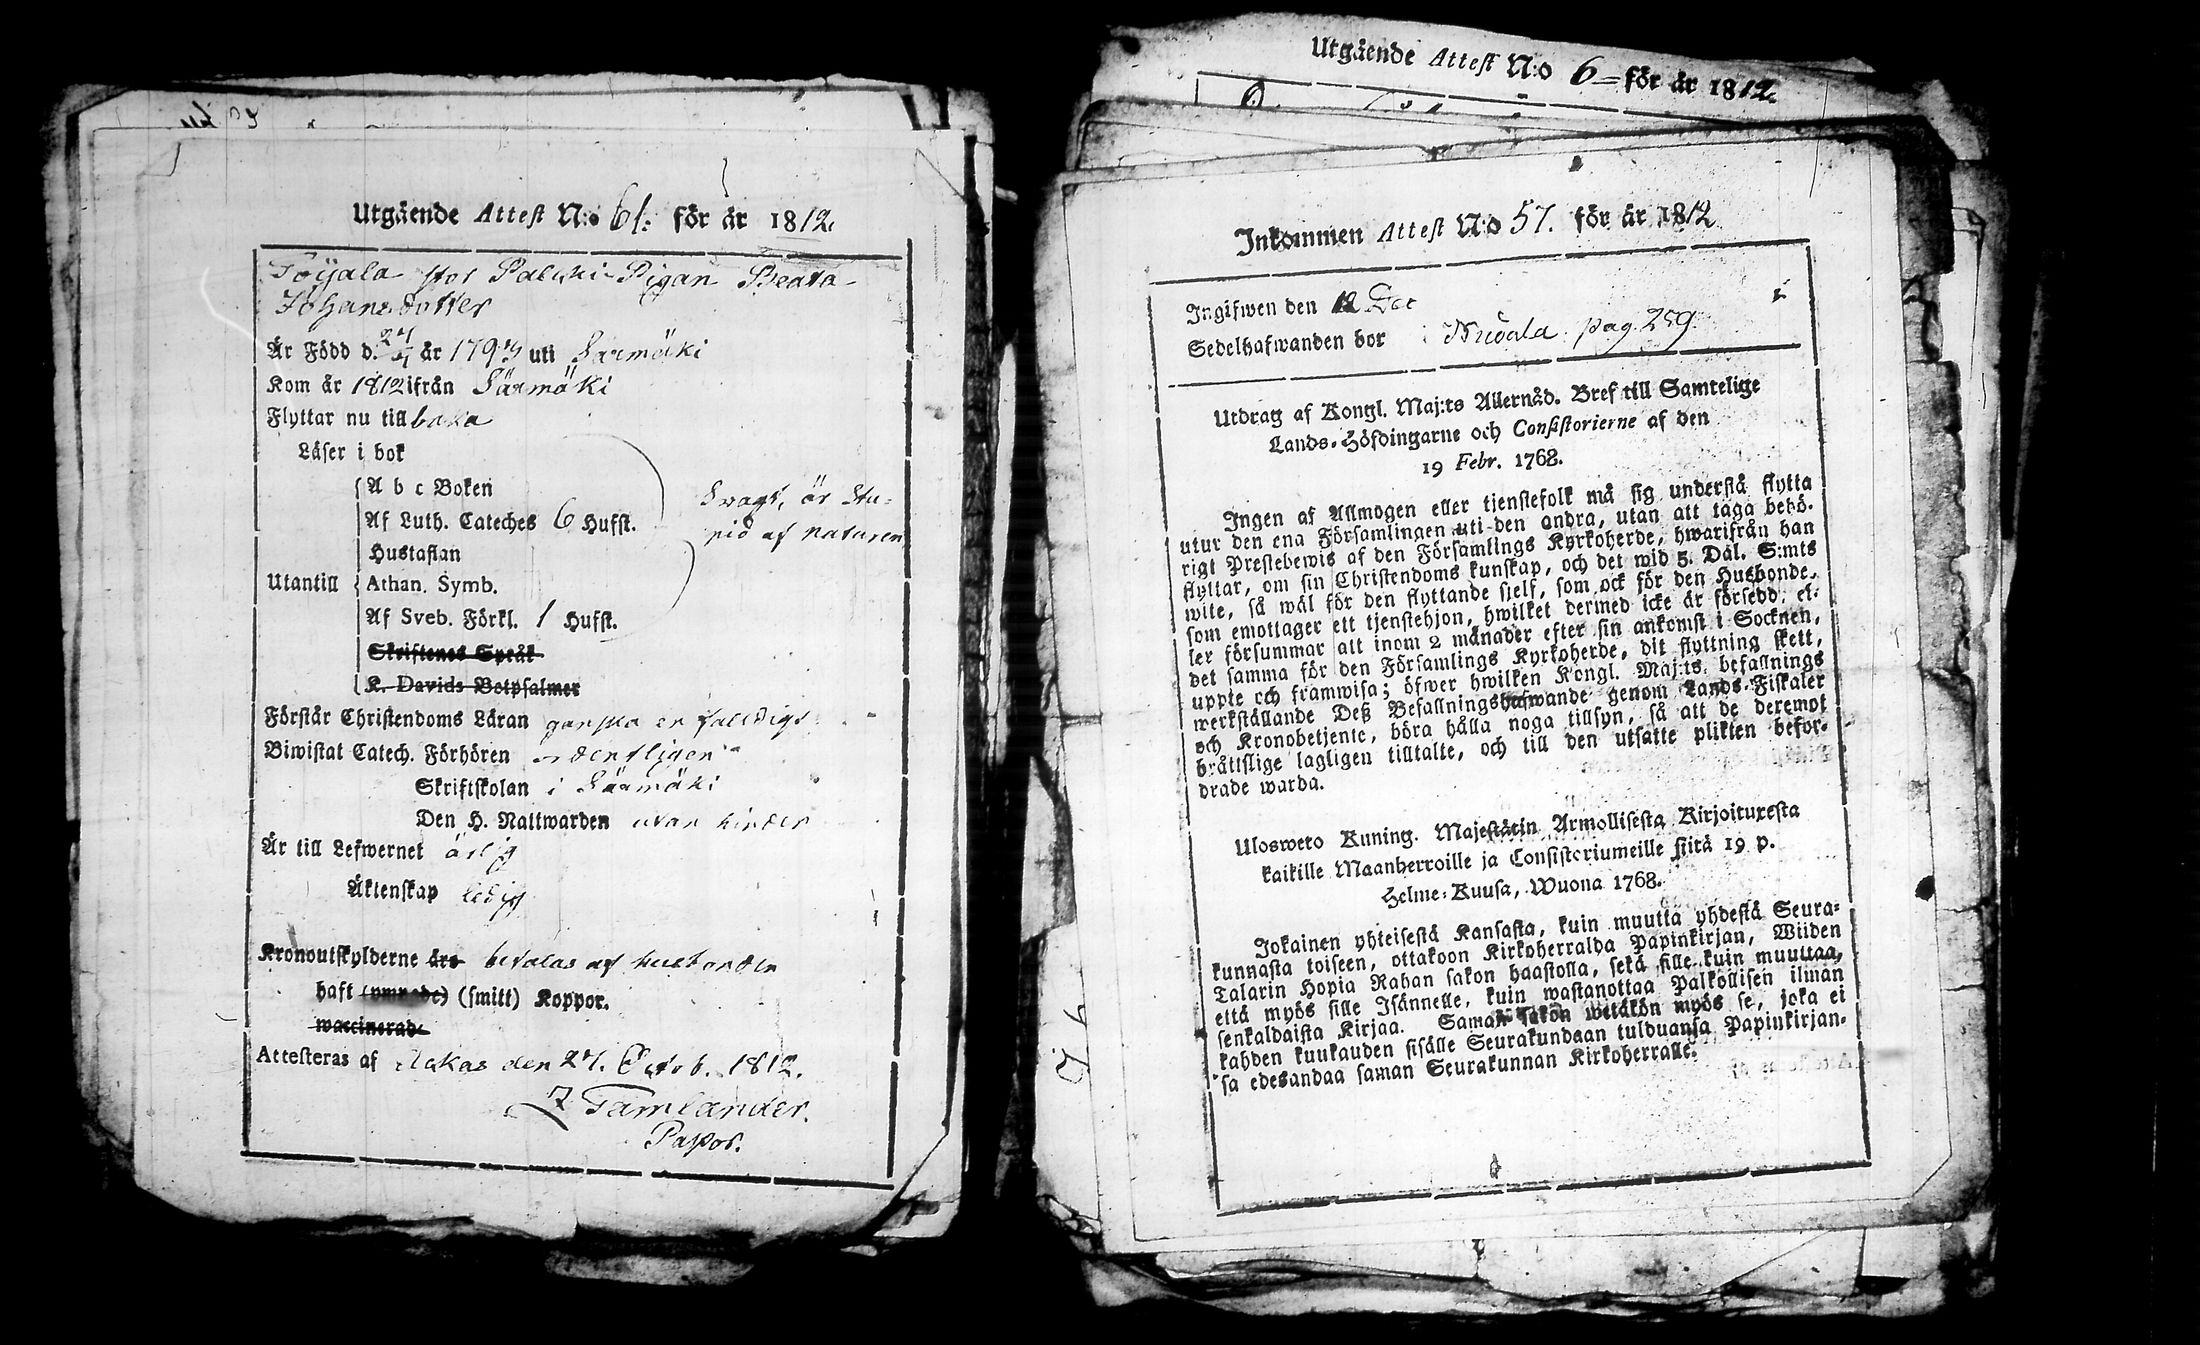 Utgående Attest N:o 61. för år 1812.
Johansdotter
Är Född d. 24/4 år 179 uti Särmäki
Kom år 1812 ifrån Särmäki
Flyttar nu till baka
Läser i bok
A b c Boken
Af Luth. Cateches 6 Hufst.
Swagt, är stu-
pid af naturen
Hustaflan
Utantill
Athan. Symb.
Af Sveb. Förkl. 1 Hufst.
Skriftenes Språk
K. Davids Botpsalmer
Förstår Christendoms Läran ganska enfalldigt
Biwistat Catech. Förhören ordentligen
Skriftskolan i Särmäki
Den H. Nattwarden utan hinder
Är till Lefwernet ärlig
Äktenskap ledig
Kronoutskylderne äro betalas af husbonden
haft (ympade) (smitt) Koppor.
waccinerad
Attesteras af Ackas den 24. Octob. 1812.
Tamlander.
Pastor.
Utgående Attest N:o 6 för år 1812.
Inkommen Attest N:o 57. för år 1812
Ingifwen den 12 Dec
Sedelhafwanden bor pag. 259.
Utdrag af Kongl. Maj:ts Allernåd. Bref till Samtelige
Lands-Höfdingarne och Consistorierne af den
19 Febr. 1768.
Ingen af Allmogen eller tjenstefolk må sig understå flytta
utur den ena Församlingen uti den andra, utan att taga behö-
rigt Prestebewis af den Församlings Kyrkoherde, hwarifrån han
flyttar, om sin Christendoms kunskap, och det wid 5. Dal. S:mts
wite, så wäl för den flyttande sjelf, som ock för den Husbonde,
som emottager ett tjenstehjon, hwilket dermed icke är försedd, el-
ler försummar att inom 2 månader efter sin ankomst i Socknen,
det samma för den Församlings Kyrkoherde, dit flyttning skett,
uppte och framwisa; öfwer hwilken Kongl. Maj:ts befallnings
werkställande Deß Befallningshafwande genom Lands-Fiskaler
och Kronobetjente, böra hålla noga tillsyn, så att de deremot
bråttslige lagligen tilltalte, och till den utsatte plikten befor-
drade warda.
Ulosweto Kuning. Majestätin Armollisesta Kirjoituxesta
kaikille Maanherroille ja Consistoriumeille siitä 19 p.
Helme-Kuusa, Wuona 1768.
Jokainen yhteisestä Kansasta, kuin muutta yhdestä Seura-
kunnasta toiseen, ottakoon Kirkoherralda Papinkirjan, Wiiden
Talarin Hopia Rahan sakon haastolla, sekä sille kuin muuttaa,
että myös sille Isännelle, kuin wastanottaa Palkollisen ilman
senkaldaista Kirjaa. Saman sakon wetäkön myös se, joka ei
kahden kuukauden sisälle Seurakundaan tulduansa Papinkirjan-
sa edesandaa saman Seurakunnan Kirkoherralle.